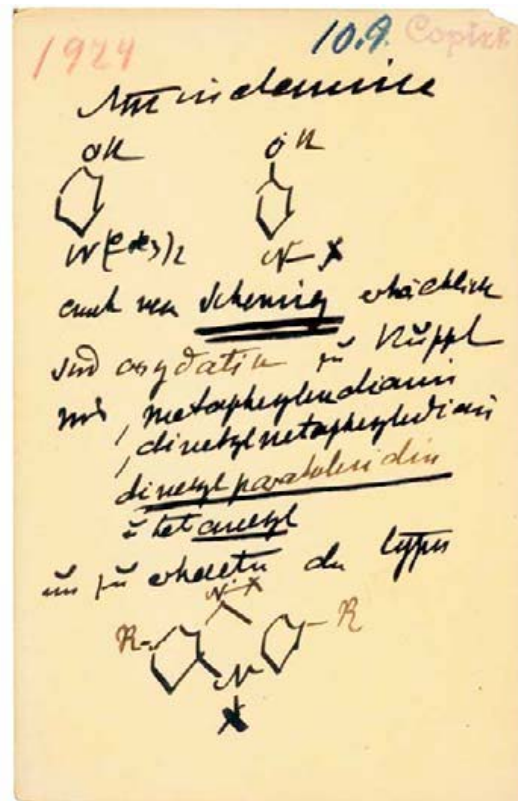 1924 10.9. Copiert
OH OH
N(CH3)2 N-X
auch von Schering erhältlich
sind oxydativ zu kuppl
mit, metaphenylendiamin
, dimetylmetaphenylendiamin
dimetyl paratoluidin
um zu erhalten den Typus
N-X
R- -R
N
X